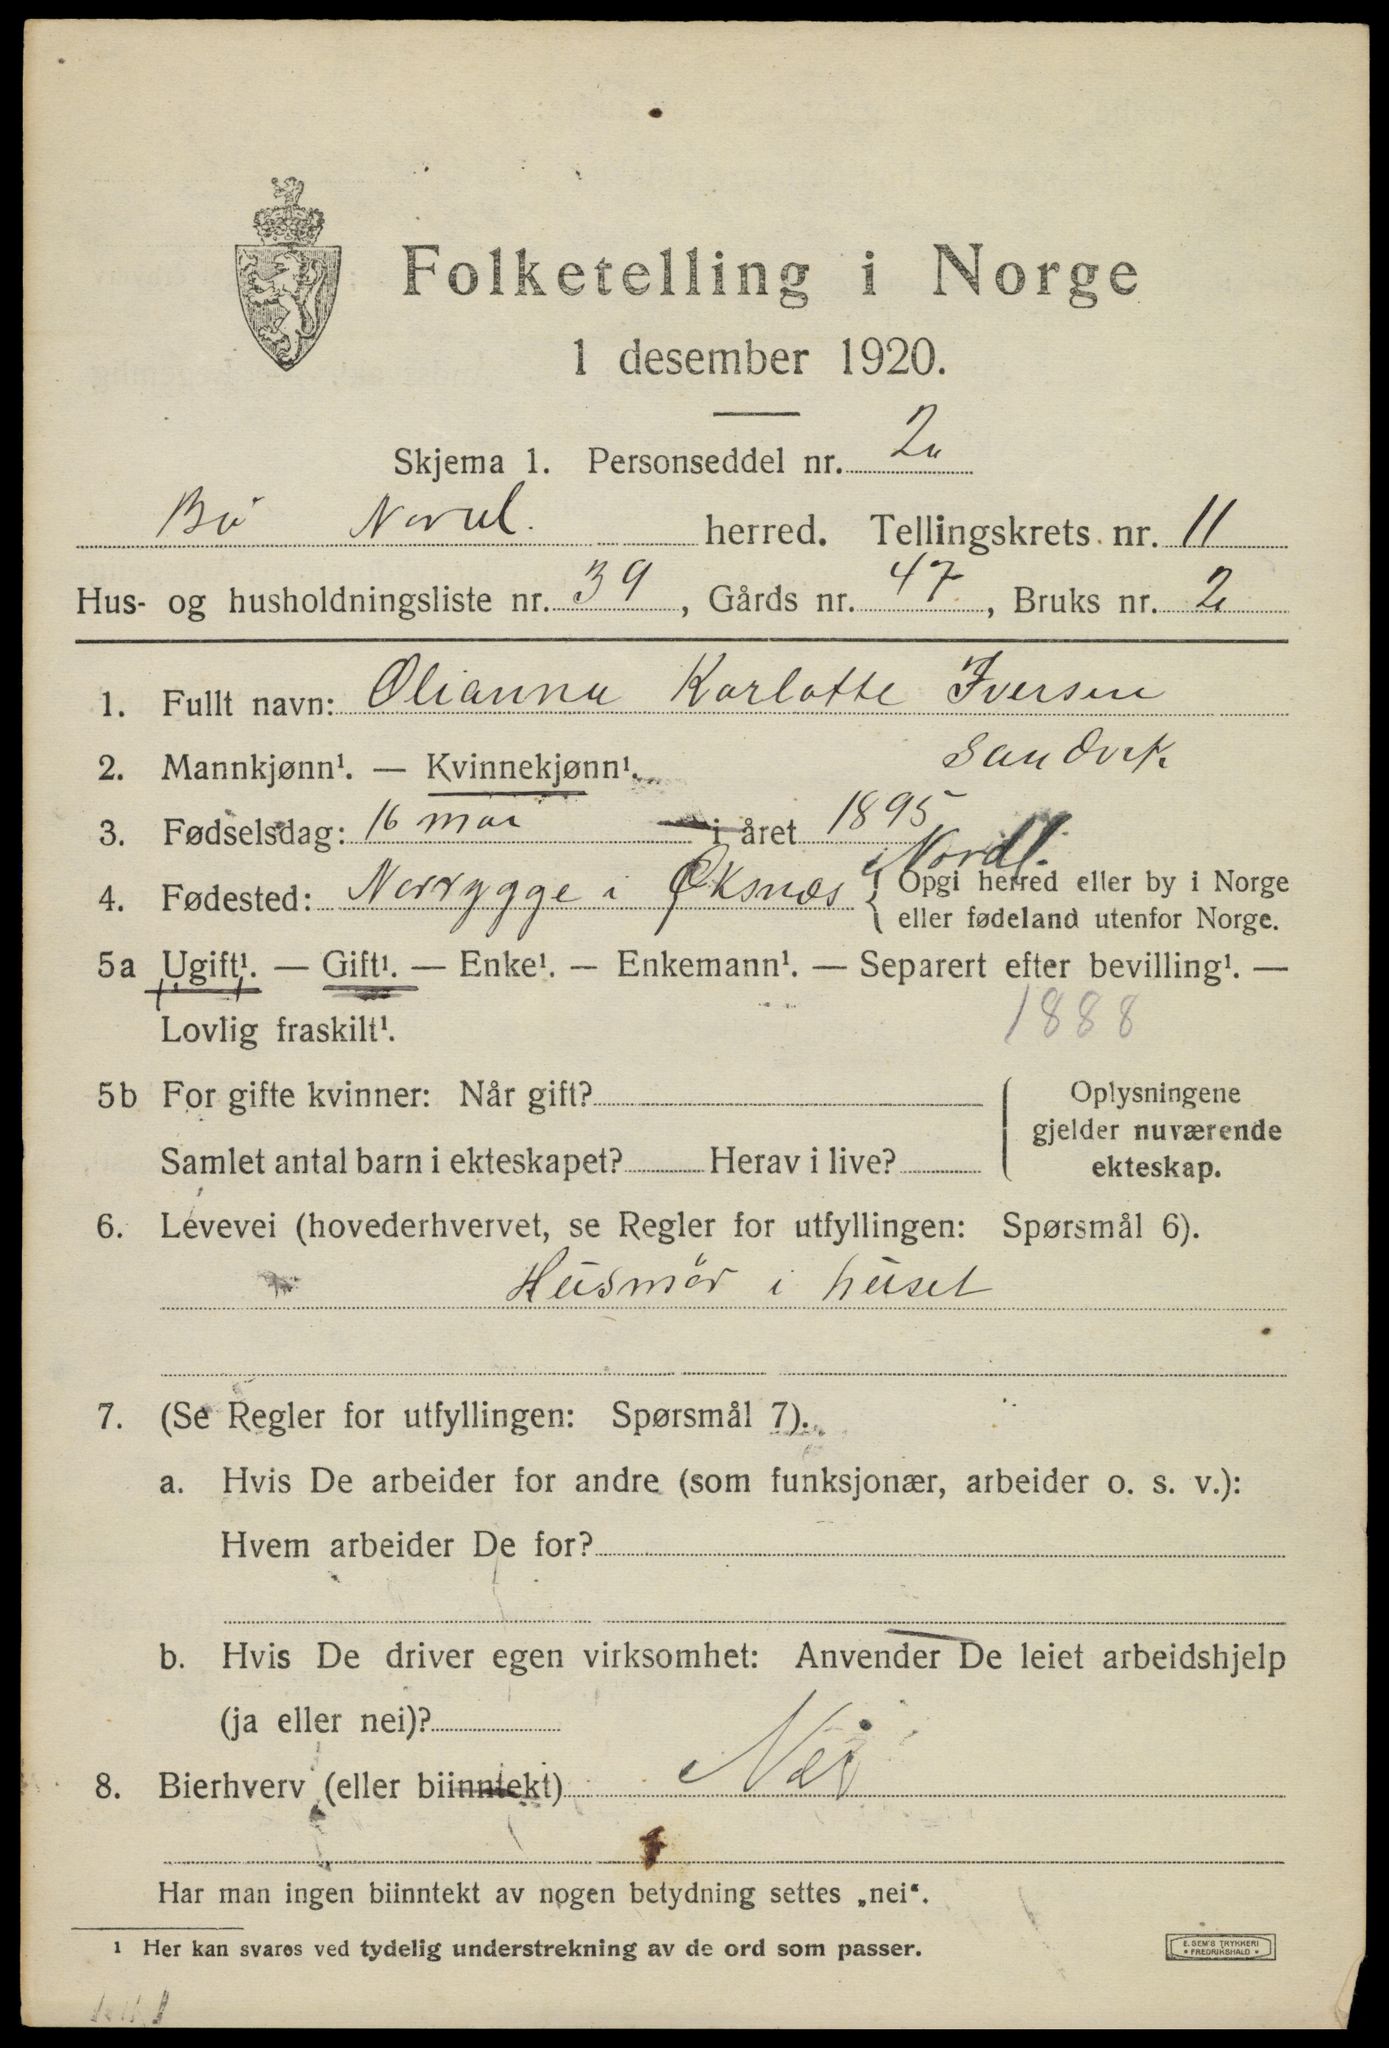 Folketelling i Norge
1 desember 1920.
Skjema 1. Personseddel nr. 2
Bø Nordl. herred. Tellingskrets nr. 11
Hus- og husholdningsliste nr. 39, Gårds nr. 47, Bruks nr. 2
1. Fullt navn: Olianna Karlotte Iversen
Sandvik
2. Mannkjønn¹. — Kvinnekjønn¹.
3. Fødselsdag: 16 mai i året 1895
Nordl.
4. Fødested: i Øksnæs { Opgi herred eller by i Norge
eller fødeland utenfor Norge.
5a Ugift¹. — Gift¹. — Enke¹. — Enkemann¹. — Separert efter bevilling¹. —
Lovlig fraskilt¹. 1888
5b For gifte kvinner: Når gift? Oplysningene
gjelder nuværende
Samlet antal barn i ekteskapet? Herav i live? ekteskap.
6. Levevei (hovederhvervet, se Regler for utfyllingen: Spørsmål 6).
Husmør i huset
7. (Se Regler for utfyllingen: Spørsmål 7).
a. Hvis De arbeider for andre (som funksjonær, arbeider o. s. v.):
Hvem arbeider De for?
b. Hvis De driver egen virksomhet: Anvender De leiet arbeidshjelp
(ja eller nei)?
8. Bierhverv (eller biinntekt) Nei
Har man ingen biinntekt av nogen betydning settes „nei“.
¹ Her kan svares ved tydelig understrekning av de ord som passer.
E. SEM'S TRYKKERI
* FREDRIKSHALD *